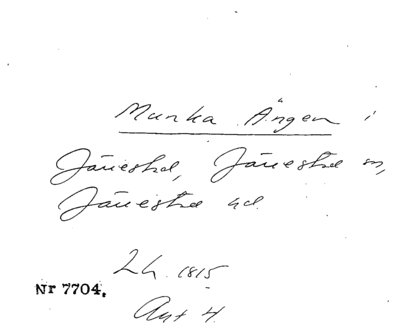 Munka Ängen i
Järrestad, Järrestad sn,
Järrestad hd.
Lh. 1815
Nr 7704.
Akt 4.